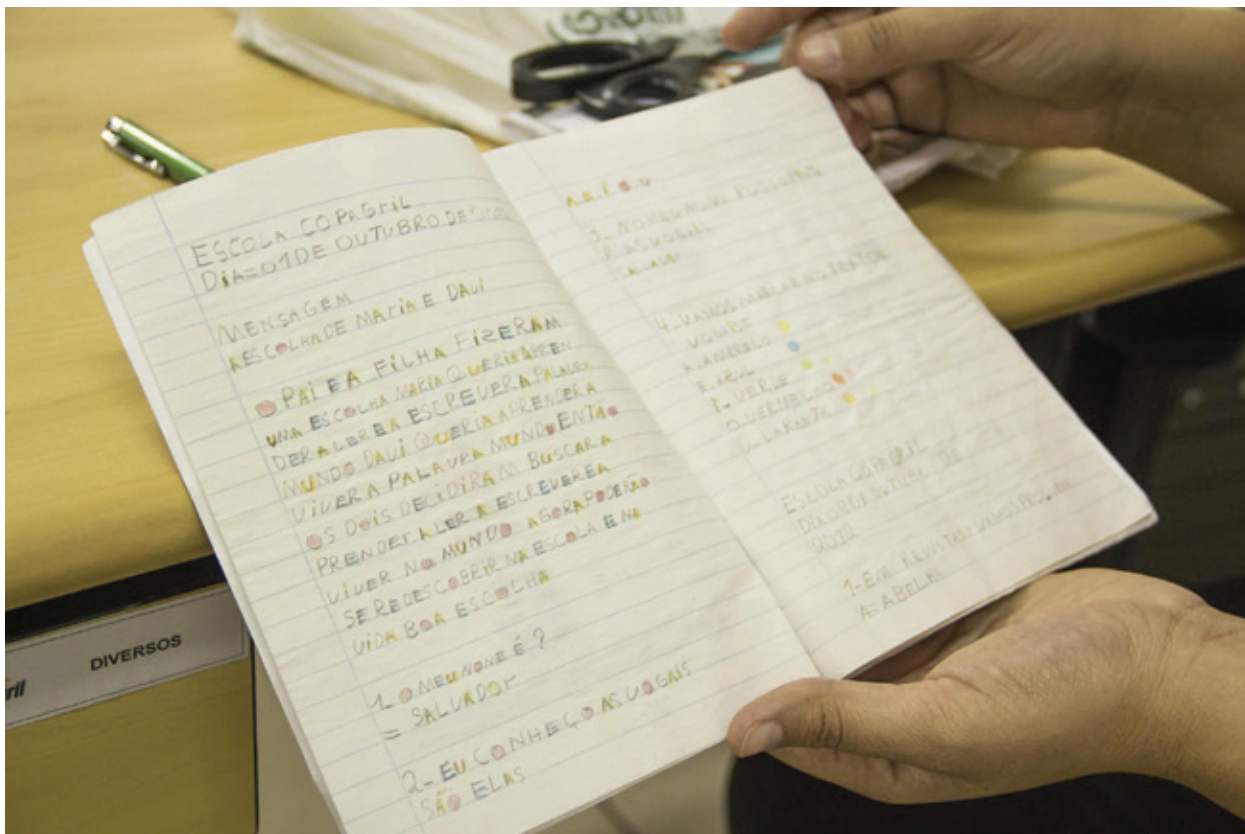 ESCOLA COPAGRIL
DIA=01 DE OUTUBRO DE
MENSAGEM
A ESCOLHA DE MARIA E DAVI
O PAI E A FILHA FIZERAM
UMA ESCOLHA MARIA QUERIA APREN
DER A LER E A ESCREVER A PALAVRA
MUNDO DAVI QUERIA APRENDER A
VIVER A PALAVRA MUNDO ENTÃO
OS DOIS DECIDIRAM BUSCAR A
PRENDER A LER A ESCREVER E A
VIVER NO MUNDO AGORA PODERÃO
SE REDESCOBRIR NA ESCOLA E NA
VIDA BOA ESCOLHA
1- O MEU NONE É?
= SALVADOR
2- EU CONHEÇO AS VOGAIS
SÃO ELAS
A.E.I.O.U
3- NO MEU NOME POSSUMOS
4- VAMOS
A. AMARELO
E. AZUL
I- VERDE
O. VERMELHO
U- LARANJA
ESCOLA COPAGRIL
DE
2012
1- EM REVISTAS VAMOS
A- ABELHA
DIVERSOS